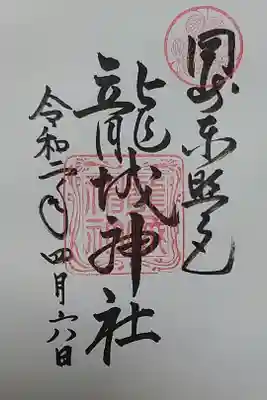 岡崎東照宮
龍城神社
令和二年四月六日